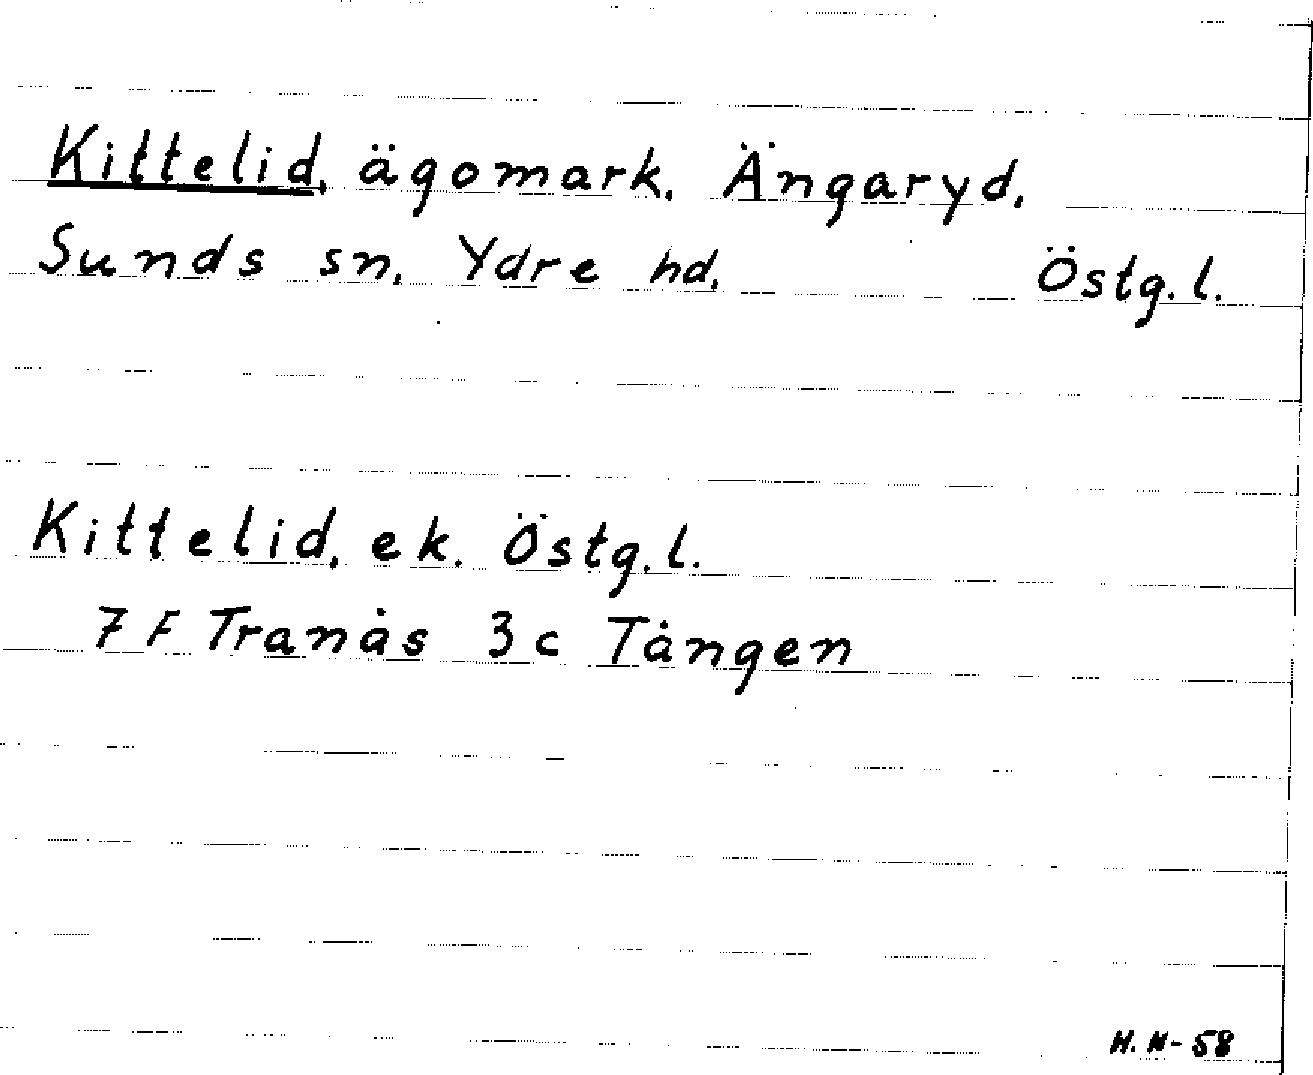 Kittelid, ägomark. Ängaryd,
Sunds sn, Ydre hd, Östg. l.
Kittelid, ek. Östg. l.
7 F Tranås 3 c Tången
H. N - 58